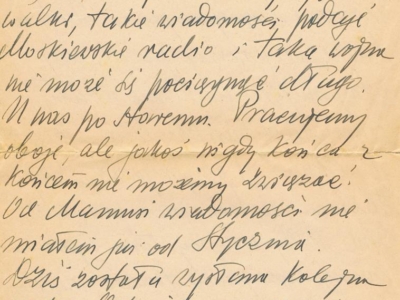 walki, takie wiadomości podaje
Moskiewskie radio i taka wojna
nie może się pociągnąć długo.
U nas po staremu. Pracujemy
oboje, ale jakoś nigdy końca z
końcem nie możemy związać!
Od Mamusi wiadomości nie
miałem już od Stycznia.
Dziś została wysłana Kolejna